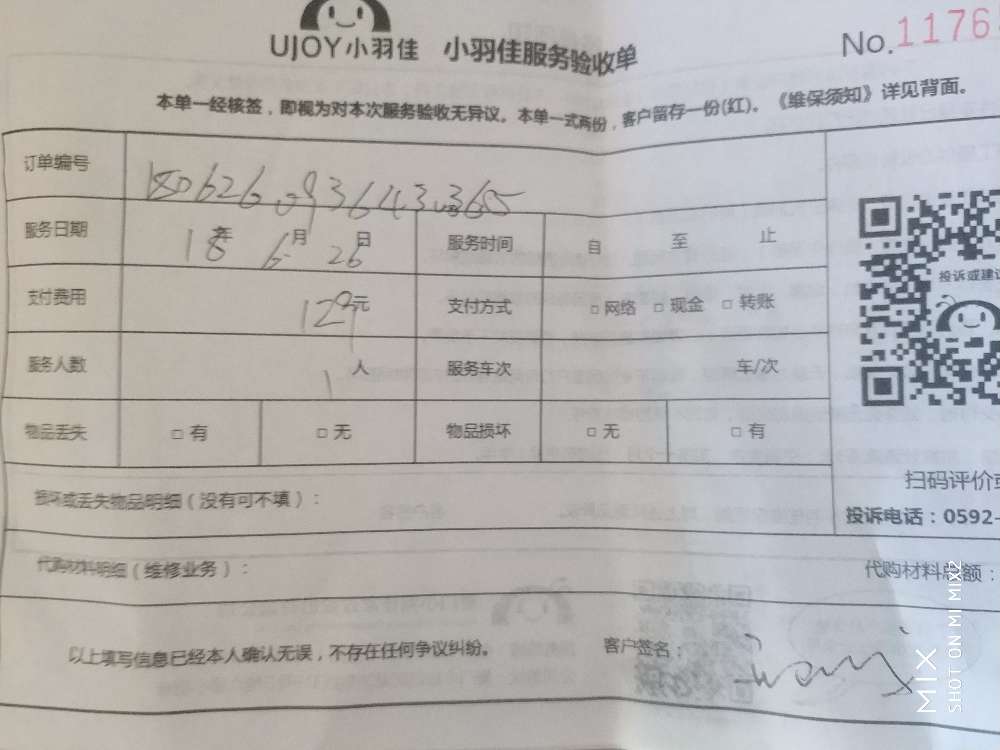 UJOY小羽佳 小羽佳服务验收单 No.1176
本单一经核签，即视为对本次服务验收无异议。本单一式两份，客户留存一份(红)。《维保须知》详见背面。
订单编号 180626093643
服务日期 18年 6月 26日 服务时间 自 至 止
支付费用 129元 支付方式 □网络 □现金 □转账
服务人数 1人 服务车次 车/次
物品丢失 □有 □无 物品损坏 □无 □有
损坏或丢失物品明细（没有可不填）：
代购材料明细（维修业务）： 代购材料总额：
以上填写信息已经本人确认无误，不存在任何争议纠纷。 客户签名：
投诉或建议
扫码评价或
投诉电话：0592-
MIX
SHOT ON MI MIX2